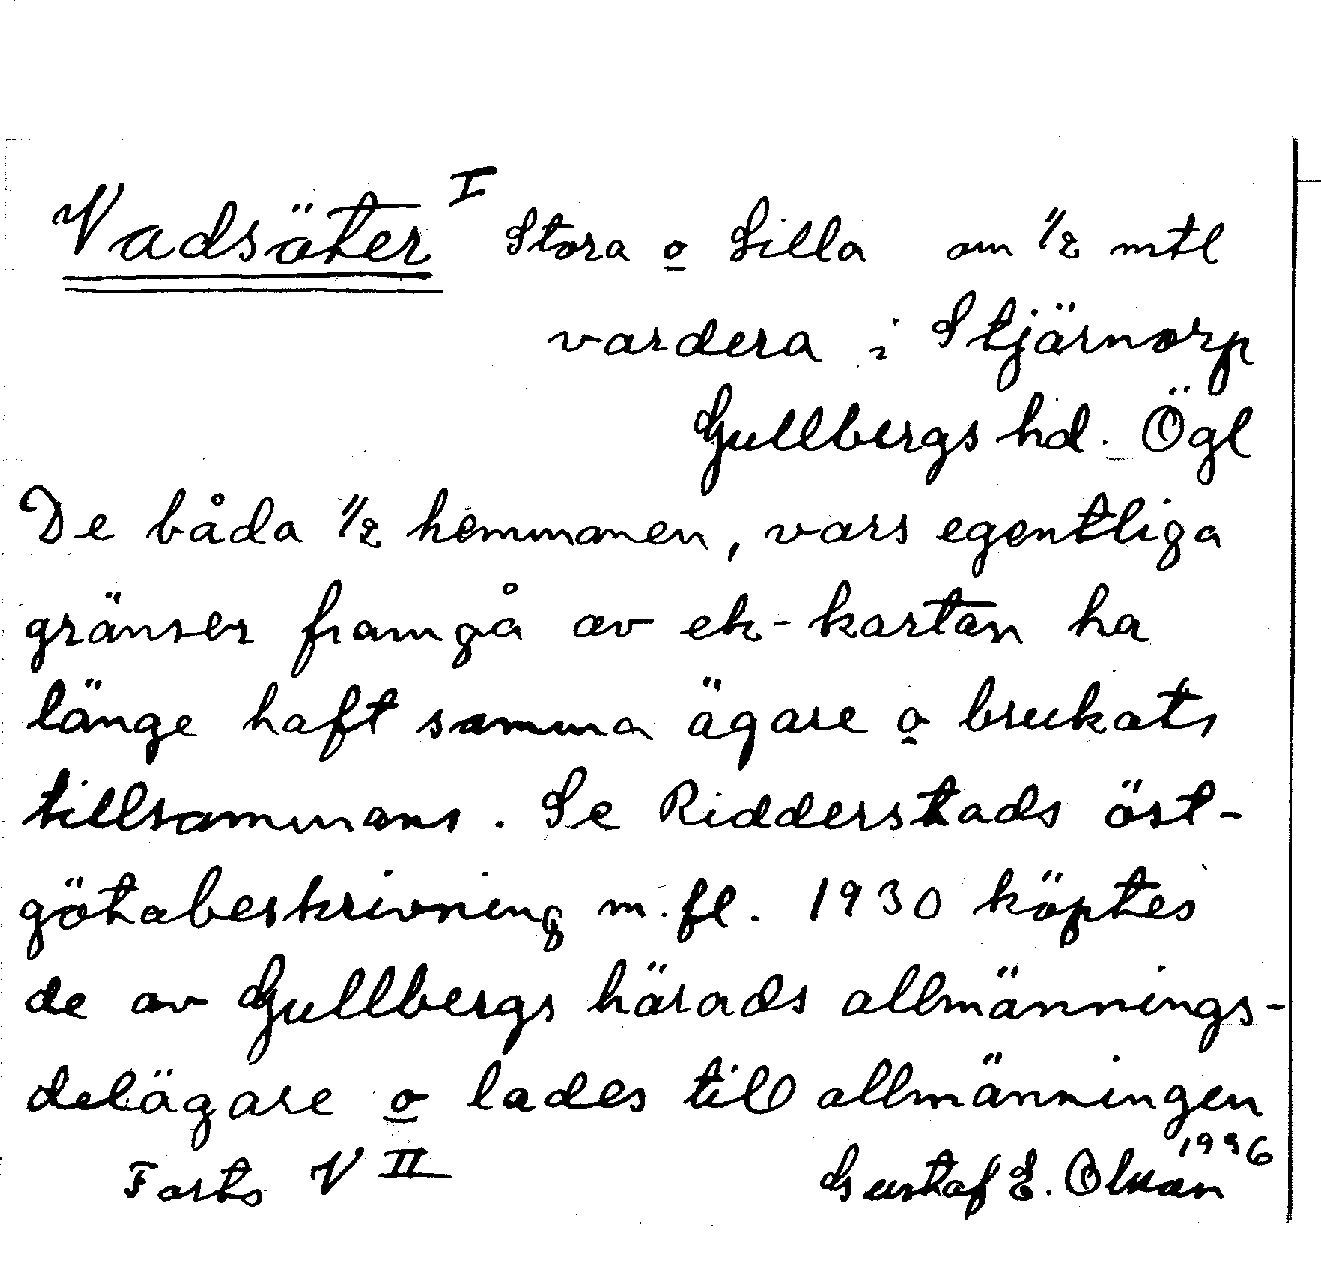 Vadsäter I Stora o Lilla om 1/2 mtl
vardera i Stjärnorp
Gullbergs hd. Ögl
De båda 1/2 hemmanen, vars egentliga
gränser framgå av ek-kartan ha
länge haft samma ägare o brukats
tillsammans. Se Ridderstads öst-
götabeskrivning m.fl. 1930 köptes
de av Gullbergs härads allmännings-
delägare o lades till allmänningen
Forts V II Gustaf E.